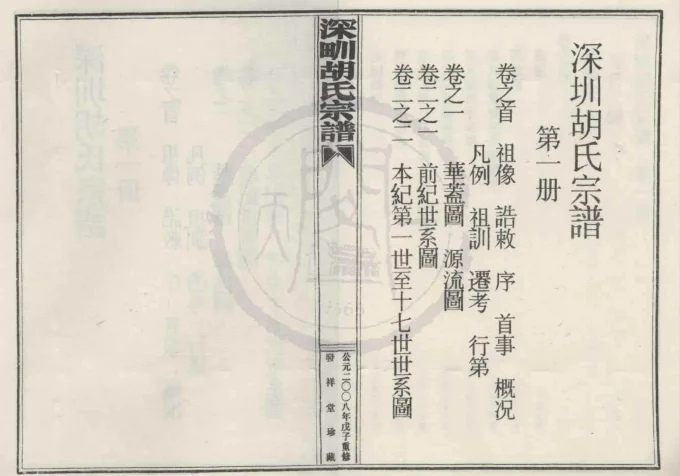 深圳胡氏宗譜
第一册
卷之首 祖像 誥敕 序 首事 概况
凡例 祖訓 遷考 行第
卷之一 華蓋圖 源流圖
卷二之一 前紀世系圖
卷二之二 本紀第一世至十七世世系圖
深甽胡氏宗譜
公元二〇〇八年戊子重修
發祥堂珍藏